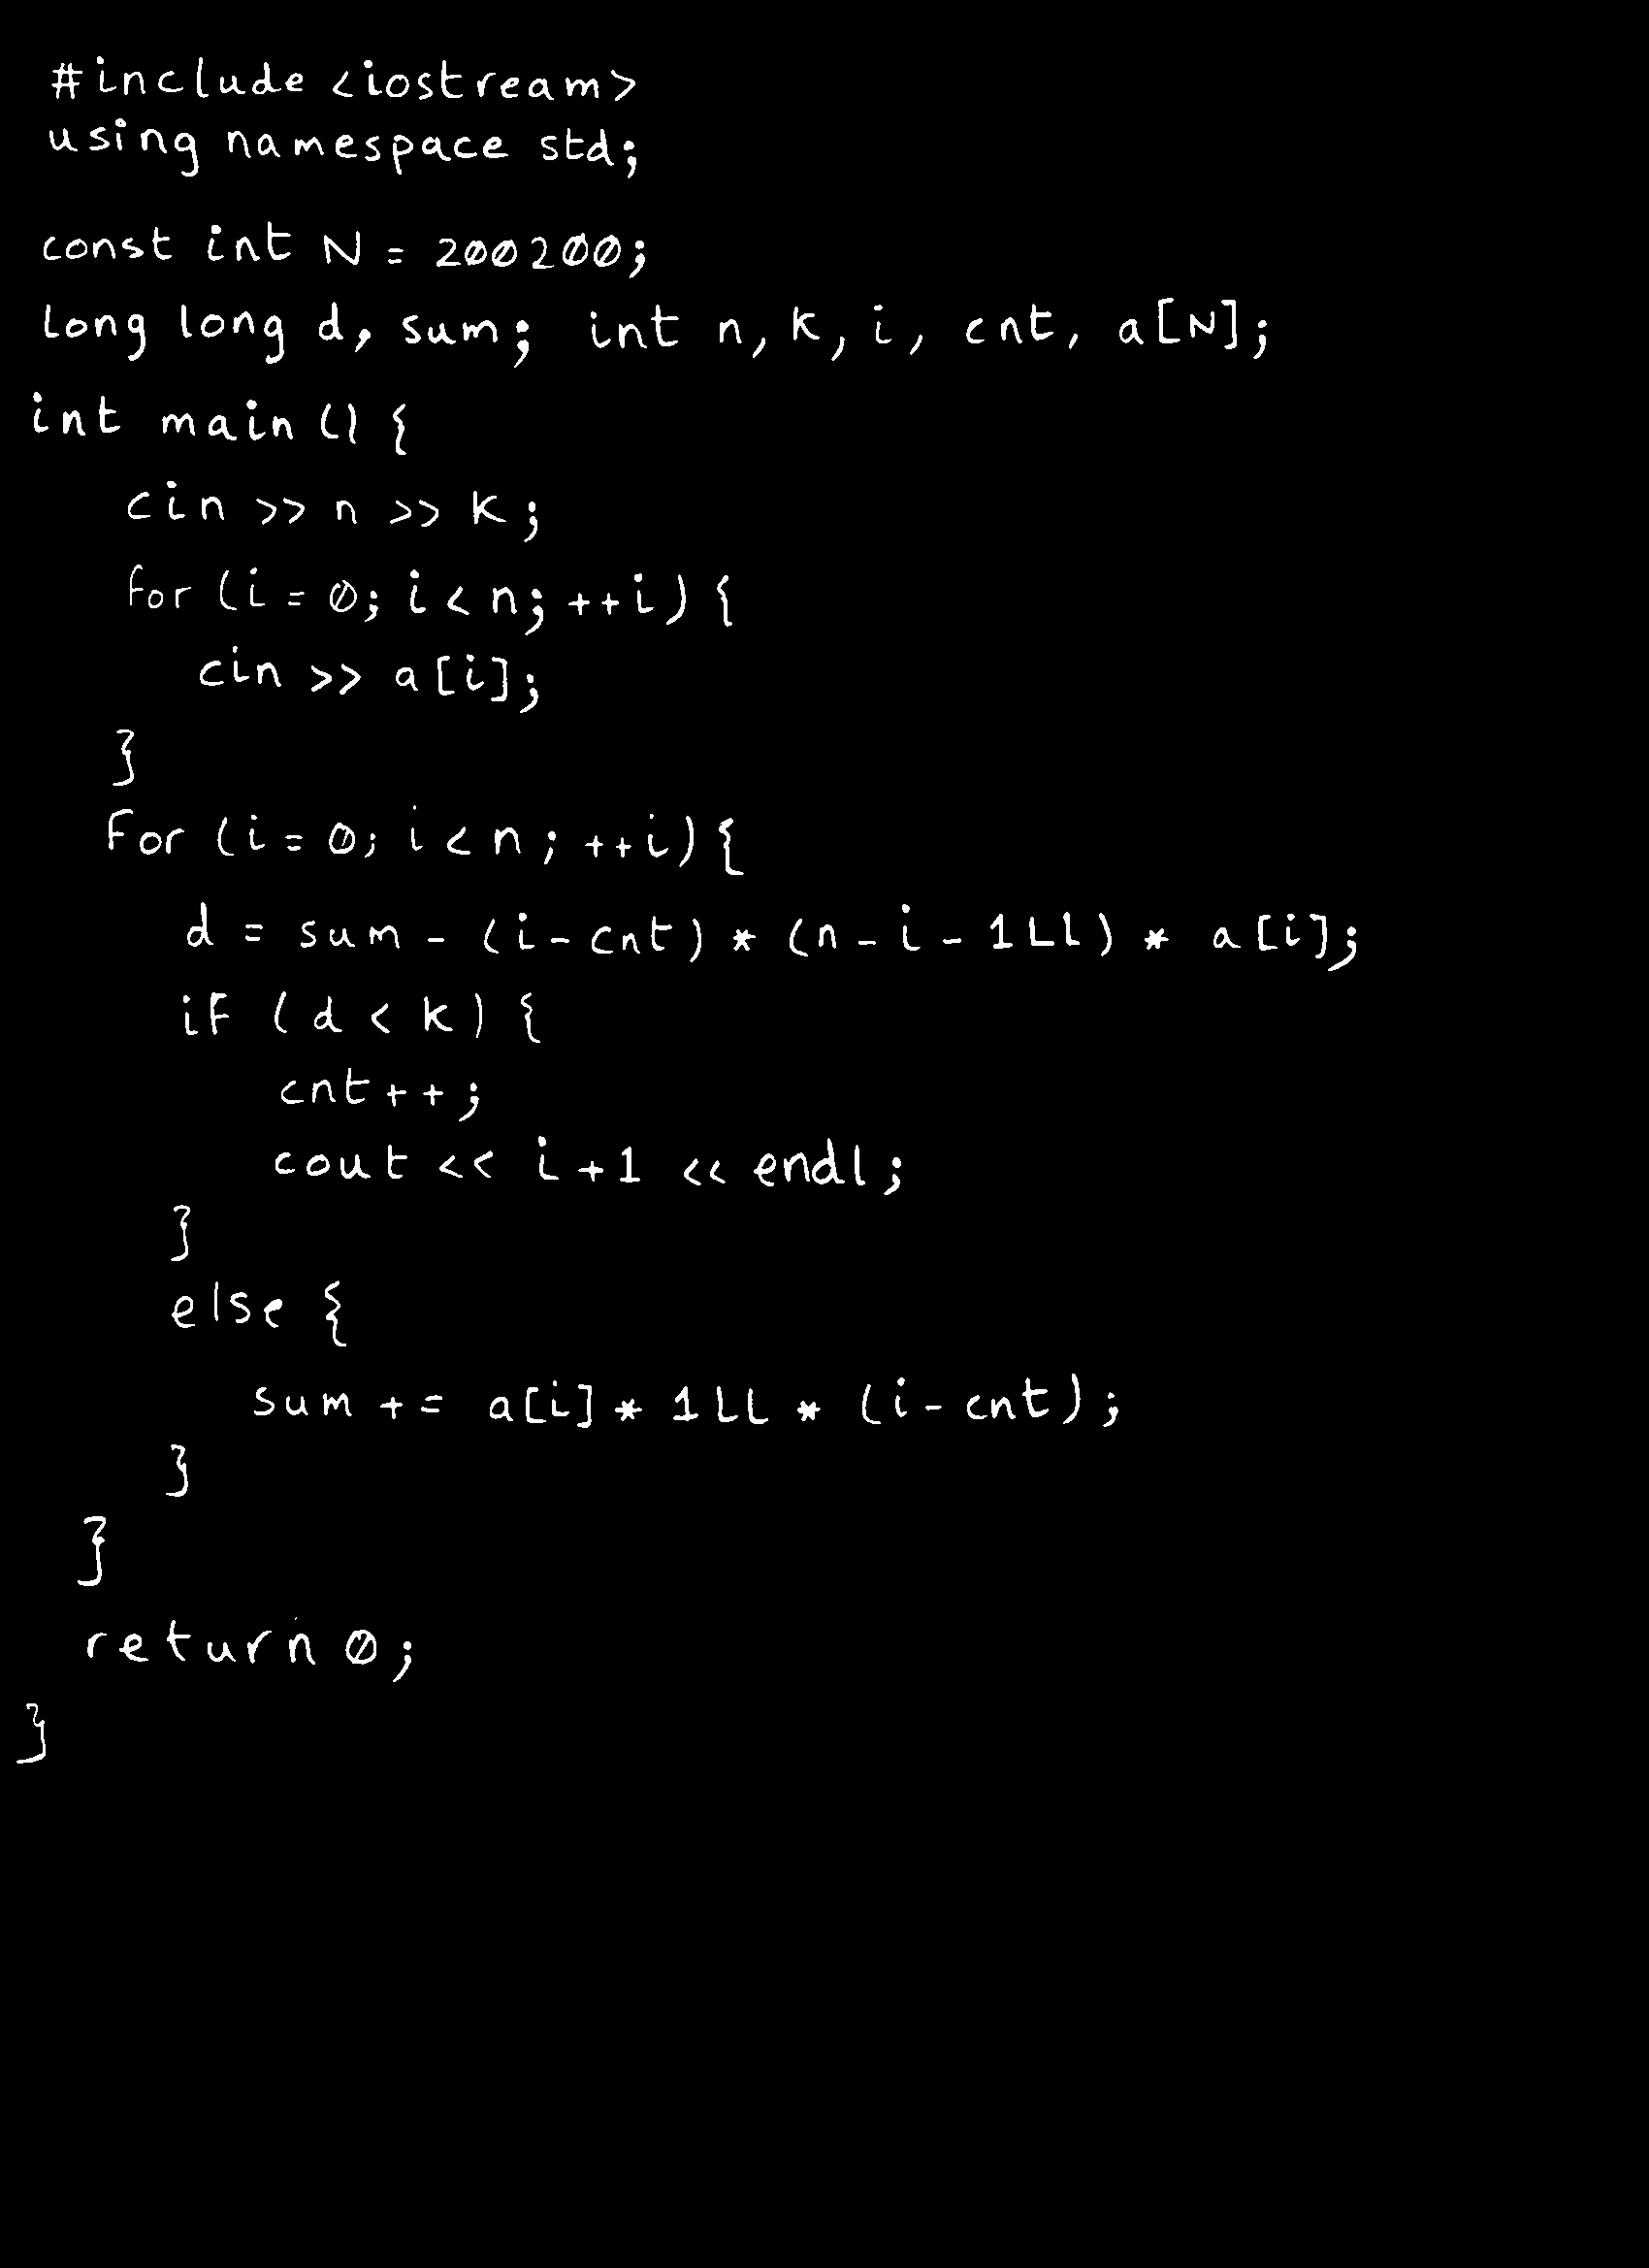 #include <iostream>
using namespace std;
const int N = 200200;
long long d, sum; int n, k, i, cnt, a[N];
int main() {
cin >> n >> k;
for (i = 0; i < n; ++i) {
cin >> a[i];
}
for (i = 0; i < n; ++i) {
d = sum - (i - cnt) * (n - i - 1LL) * a[i];
if (d < k) {
cnt++;
cout << i + 1 << endl;
}
else {
sum += a[i] * 1LL * (i - cnt);
}
}
return 0;
}